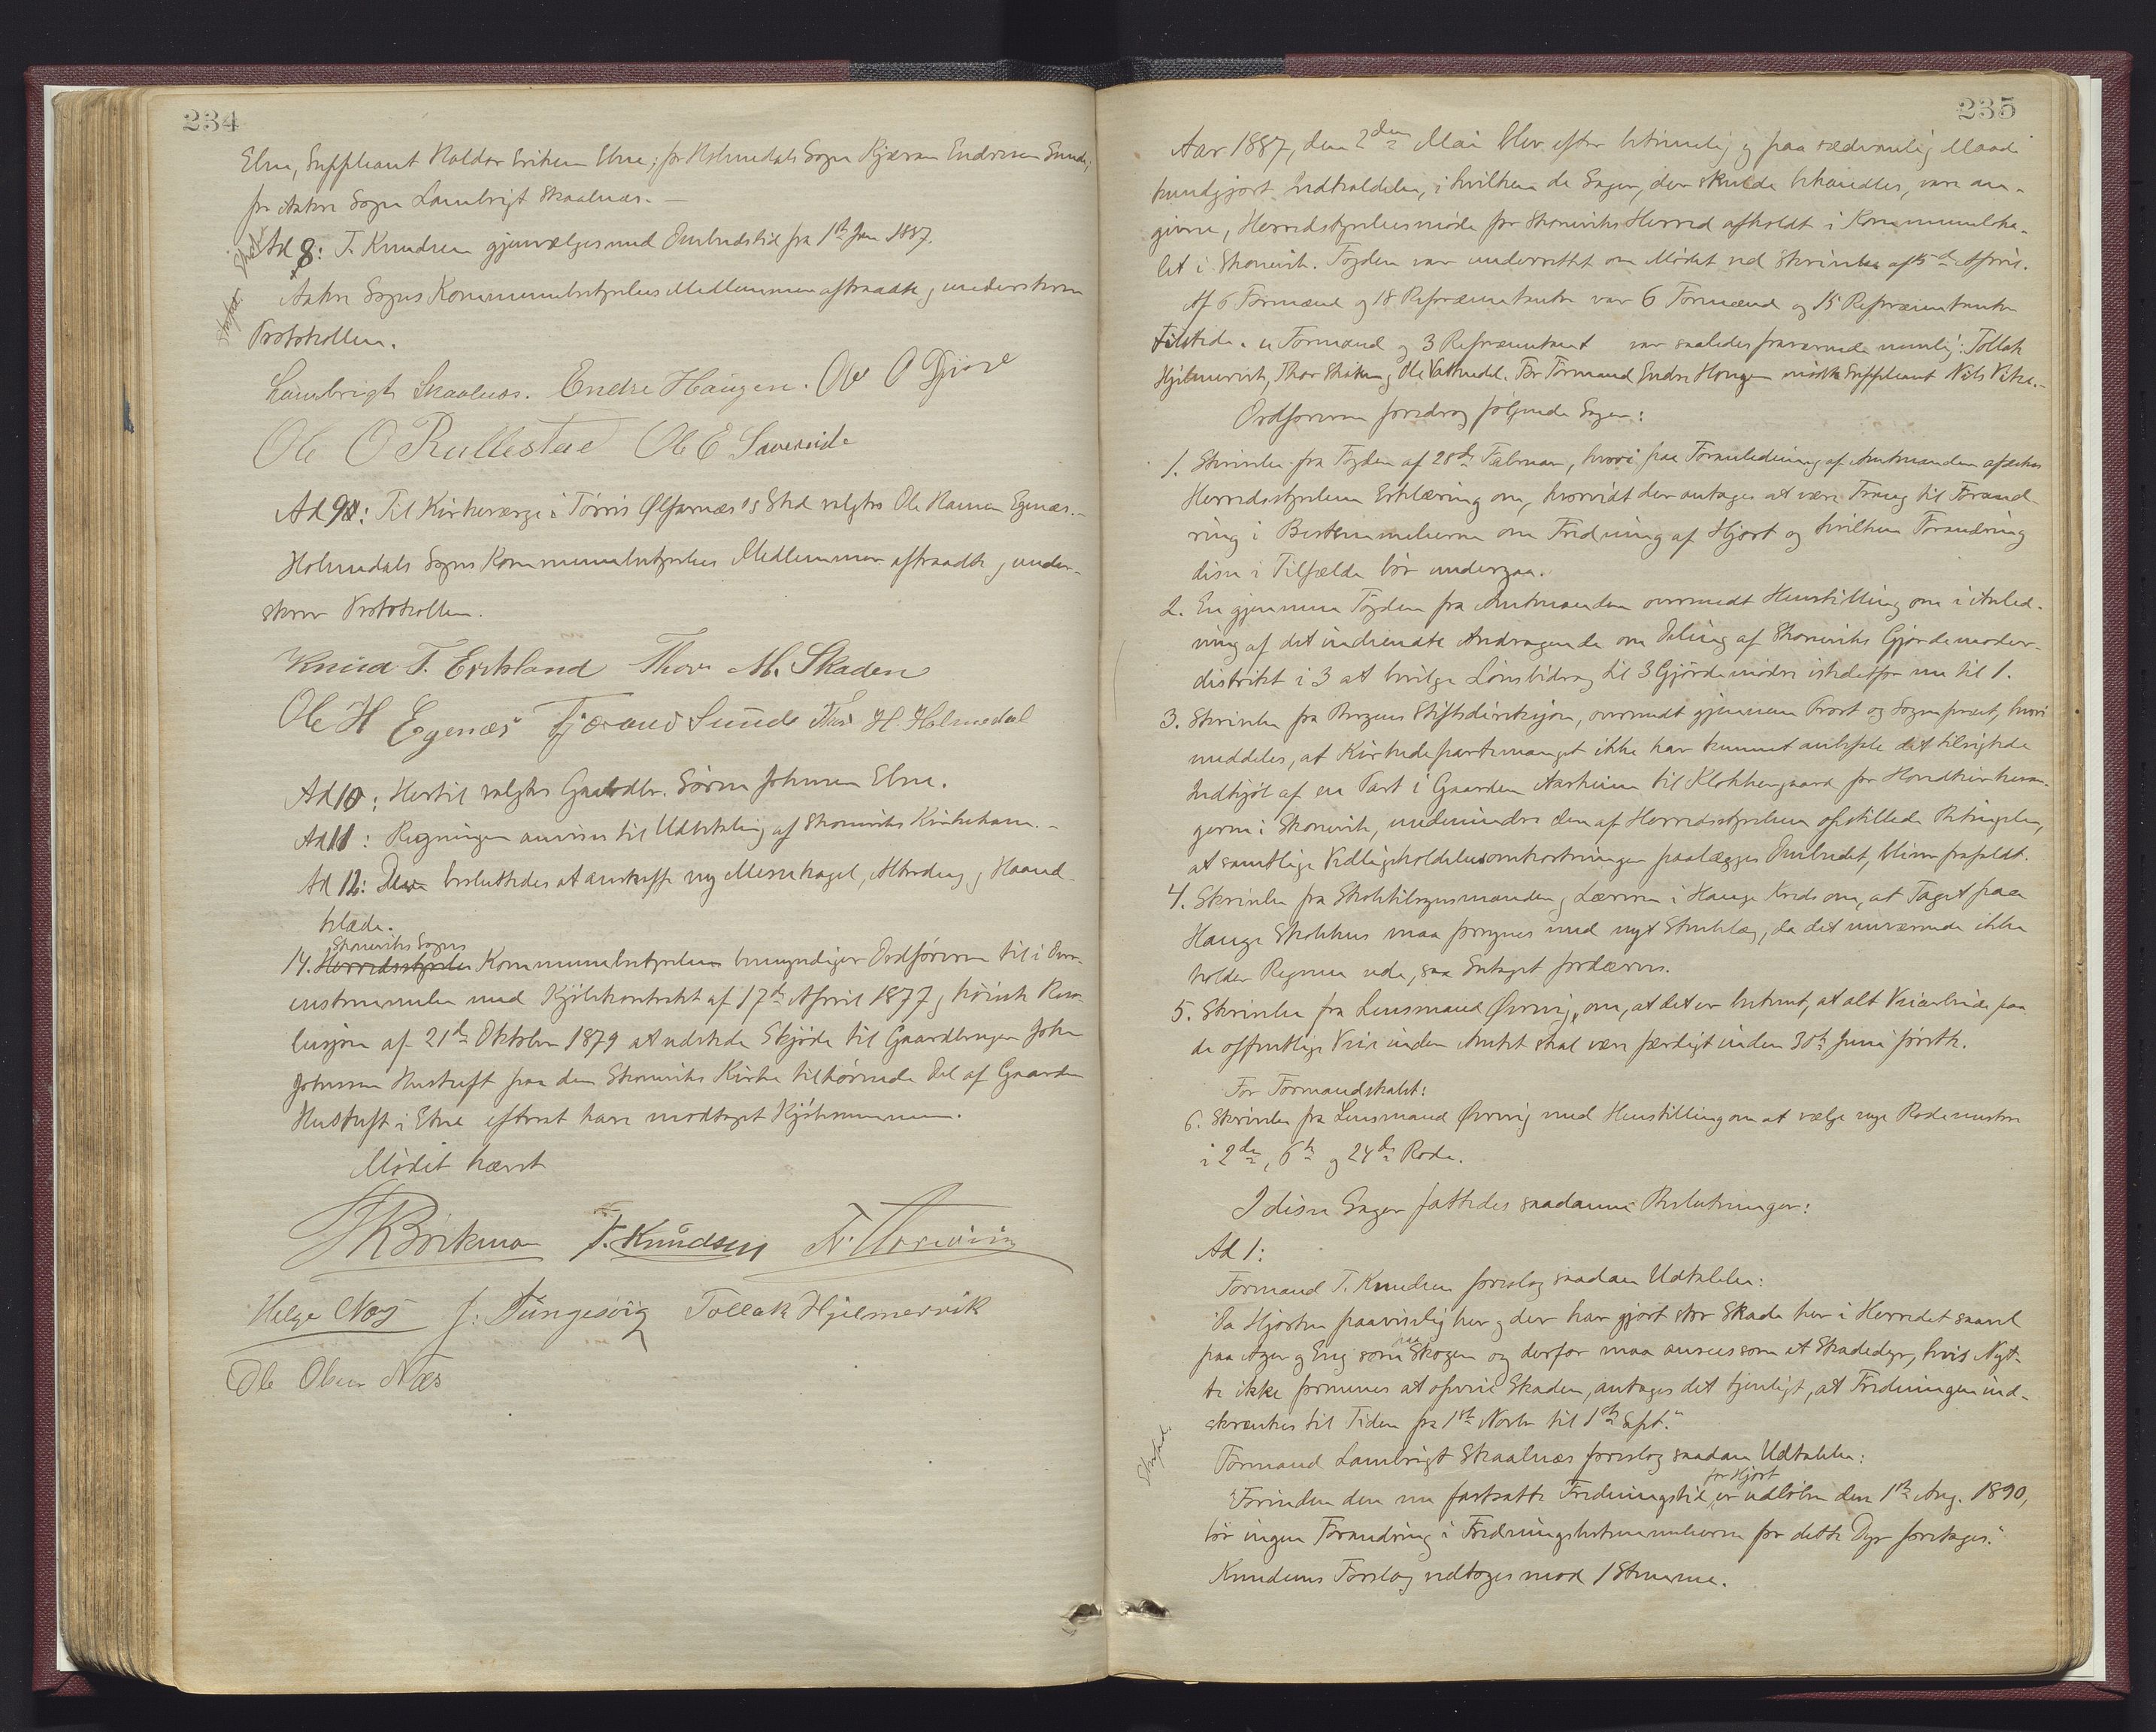 234
Ebne, Suppleant Haldor Eriksen Ebne; for Holmedals Sogn Kjæran Endresen Sunde;
for Aakre Sogn Lambrigt Skaalnæs. —
Ad 8: T. Knudsen gjenvælges med Ombudstid fra 1ste Jan 1887.
Aakre Sogns Kommunebestyrelses Medlemmer aftraadte og underskrev
Protokollen.
Lambrigt Skaalnæs. Endre Haugen. Ole O
Ole O Rullestad Ole E Savereide
Ad 9: Til Kirkeværge i Tórris Ølfarnæs's Sted valgtes Ole Hansen Egenæs. –
Holmedals Sogns Kommunebestyrelses Medlemmer aftraadte og under-
skrev Protokollen.
Knud T. Erksland Thor M. Skaden
Ole H Egenæs Tjærand Sunde Thor H. Holmedal
Ad 10: Hertil valgtes Gaardbr. Sören Johnsen Ebne.
Ad 11: Regningen anvises til Udbetaling af Skoneviks Kirkekasse. –
Ad 12: Det besluttedes at anskaffe ny Messehagel, Alterdug og Haand-
klæde.
Skoneviks Sogns
14. Herredsstyrelses Kommunebestyrelsen bemyndiger Ordföreren til i Over-
ensstemmelse med Kjöbekontrakt af 17de April 1877 og höieste Reso-
lusjon af 21de Oktober 1879 at udstede Skjöde til Gaardbruger John
Johnsen Hustuft paa den Skoneviks Kirke tilhörende Del af Gaarden
Hustuft i Etne efterat have modtaget Kjöbesummen.
Mödet hævet
T. Knudsen
Helge Næs J. Tungesvig Tollak Hjelmervik
Ole Olsen Næs
235
Aar 1887, den 2den Mai blev efter betimelig og paa sædvanlig Maade
kundgjort Indkaldelse, i hvilken de Sager, der skulde behandles, vare an-
givne, Herredsstyrelsesmöde for Skoneviks Herred afholdt i Kommuneloka-
let i Skonevik. Fogden var underrettet om Mödet ved Skrivelse af 15de April.
Af 6 Formænd og 18 Repræsentanter var 6 Formænd og 15 Repræsentanter
tilstede. Formænd og 3 Repræsentant var saaledes fraværende nemlig: Tollak
Hjelmervik, Thor Skaden og Ole Vattnedal. For Formand Endre Haugen mödte Suppleant Nils Vika. –
Ordföreren foredrog fölgende Sager:
1. Skrivelse fra Fogden af 28de Februar, hvori paa Foranledning af Amtmanden afæskes
Herredsstyrelsens Erklæring om, hvorvidt der antages at være Trang til Forand-
ring i Bestemmelserne om Fredning af Hjort og hvilken Forandring
disse i Tilfælde bör undergaa.
2. En gjennem Fogden fra Amtmanden oversendt Henstilling om i Anled-
ning af det indsendte Andragende om Deling af Skoneviks Gjordemoder-
distrikt i 3 at bevilge Lönsbidrag til 3 Gjordemödre istedetfor nu til 1.
3. Skrivelse fra Bergens Stiftsdireksjon, oversendt gjennem Provst og Sogneprest, hvori
meddeles, at Kirkedepartementet ikke har kunnet anbefale det tilsigtede
Indkjöb af en Part i Gaarden Aarheim til Klokkergaard for Hovedkirkesan-
geren i Skonevik, medmindre den af Herredsstyrelsen opstillede Betingelse,
at samtlige Vedligeholdelsesomkostninger paalægges Ombudet, bliver frafaldt.
4. Skrivelse fra Skoletilsynsmanden og Læreren i Hauge Kreds om, at Taget paa
Hauge Skolehus maa fornyes med nyt Stenlag, da det nuværende ikke
holder Regnen ude, saa Sutaget fordærves.
5. Skrivelse fra Lensmand Øvrevig, om, at det er bestemt, at alt Veiarbeide paa
de offentlige Veie inden Amtet skal være færdigt inden 30te Juni förstk.
For Formandskabet:
6. Skrivelse fra Lensmand Øvrevig med Henstilling om at vælge nye Rodemestre
i 2den, 6te og 24de Rode.
I disse Sager fattedes saadanne Beslutninger:
Ad 1:
Formand T. Knudsen foreslog saadan Udtalelse:
"Da Hjorten paaviselig her og der har gjort stor Skade her i Herredet saavel
paa Ager og Eng som paa Skogen og derfor maa ansees som et Skadedyr, hvis Nyt-
te ikke formenes at opveie Skaden, antages det tjenligt, at Fredningen ind-
skrænkes til Tiden fra 1ste Novbr til 1ste Sept."
Formand Lambrigt Skaalnæs foreslog saadan Udtalelse:
for Hjort
"Förinden den nu fastsatte Fredningstid er udlöben den 1ste Aug. 1890,
bör ingen Forandring i Fredningsbestemmelserne for dette Dyr foretages."
Knudsens Forslag vedtoges mod 1 Stemme.